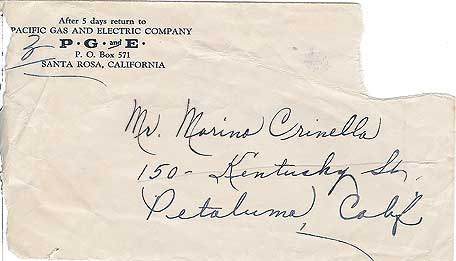 After 5 days return to
PACIFIC GAS AND ELECTRIC COMPANY
P·G·and·E·
P. O. Box 571
SANTA ROSA, CALIFORNIA
Mr. Marino Crinella
150- Kentucky St.
Petaluma, Calif